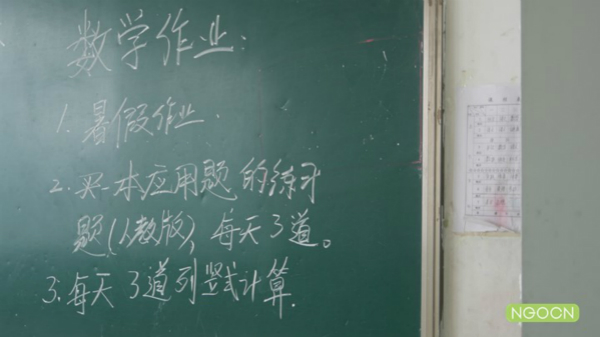 数学作业:
1. 暑假作业.
2. 买一本应用题的练习
题(人教版), 每天3道。
3. 每天3道列竖式计算.
NGOCN